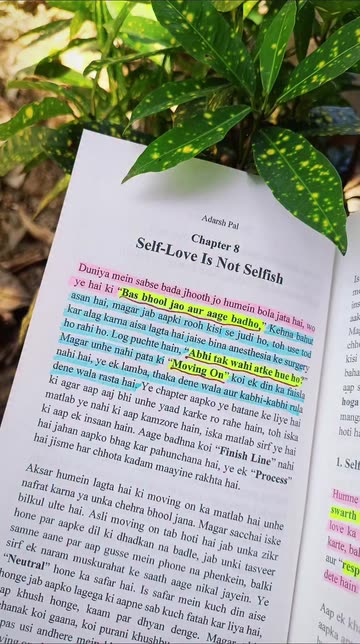 Adarsh Pal
Chapter 8
Self-Love Is Not Selfish
Duniya mein sabse bada jhooth jo humein bola jata hai, wo
ye hai ki "Bas bhool jao aur aage badho," Kehna bahut
asan hai, magar jab aapki rooh kisi se judi ho, toh use tod
kar alag karna aisa lagta hai jaise bina anesthesia ke surgery
ho rahi ho. Log puchte hain, "Abhi tak wahi atke hue ho?"
Magar unhe nahi pata ki "Moving On" koi ek din ka faisla
nahi hai, ye ek lamba, thaka dene wala aur kabhi-kabhi rula
dene wala rasta hai. Ye chapter aapko ye batane ke liye hai
ki agar aap aaj bhi unhe yaad karke ro rahe hain, toh iska
matlab ye nahi ki aap kamzore hain, iska matlab sirf ye hai
ki aap ek insaan hain. Aage badhna koi "Finish Line" nahi
hai jahan aapko bhag kar pahunchana hai, ye ek "Process"
hai jisme har chhota kadam maayine rakhta hai.
Aksar humein lagta hai ki moving on ka matlab hai unhe
nafrat karna ya unka chehra bhool jana. Magar sacchai iske
bilkul ulte hai. Asli moving on tab hoti hai jab unka zikr
hone par aapke dil ki dhadkan na badle, jab unki tasveer
samne aane par aap gusse mein phone na phenkein, balki
sirf ek naram muskurahat ke saath aage nikal jayein. Ye
"Neutral" hone ka safar hai. Is safar mein kuch din aise
honge jab aapko lagega ki aapne sab kuch fatah kar liya hai,
ap khush honge, kaam par dhyan denge. Magar
hanak koi gaana, koi purani khushbu
pas usi andhere mein
1. Self
Humne
swarth
love ka
karte, bal
aur "resp
dete hain
Aap ek